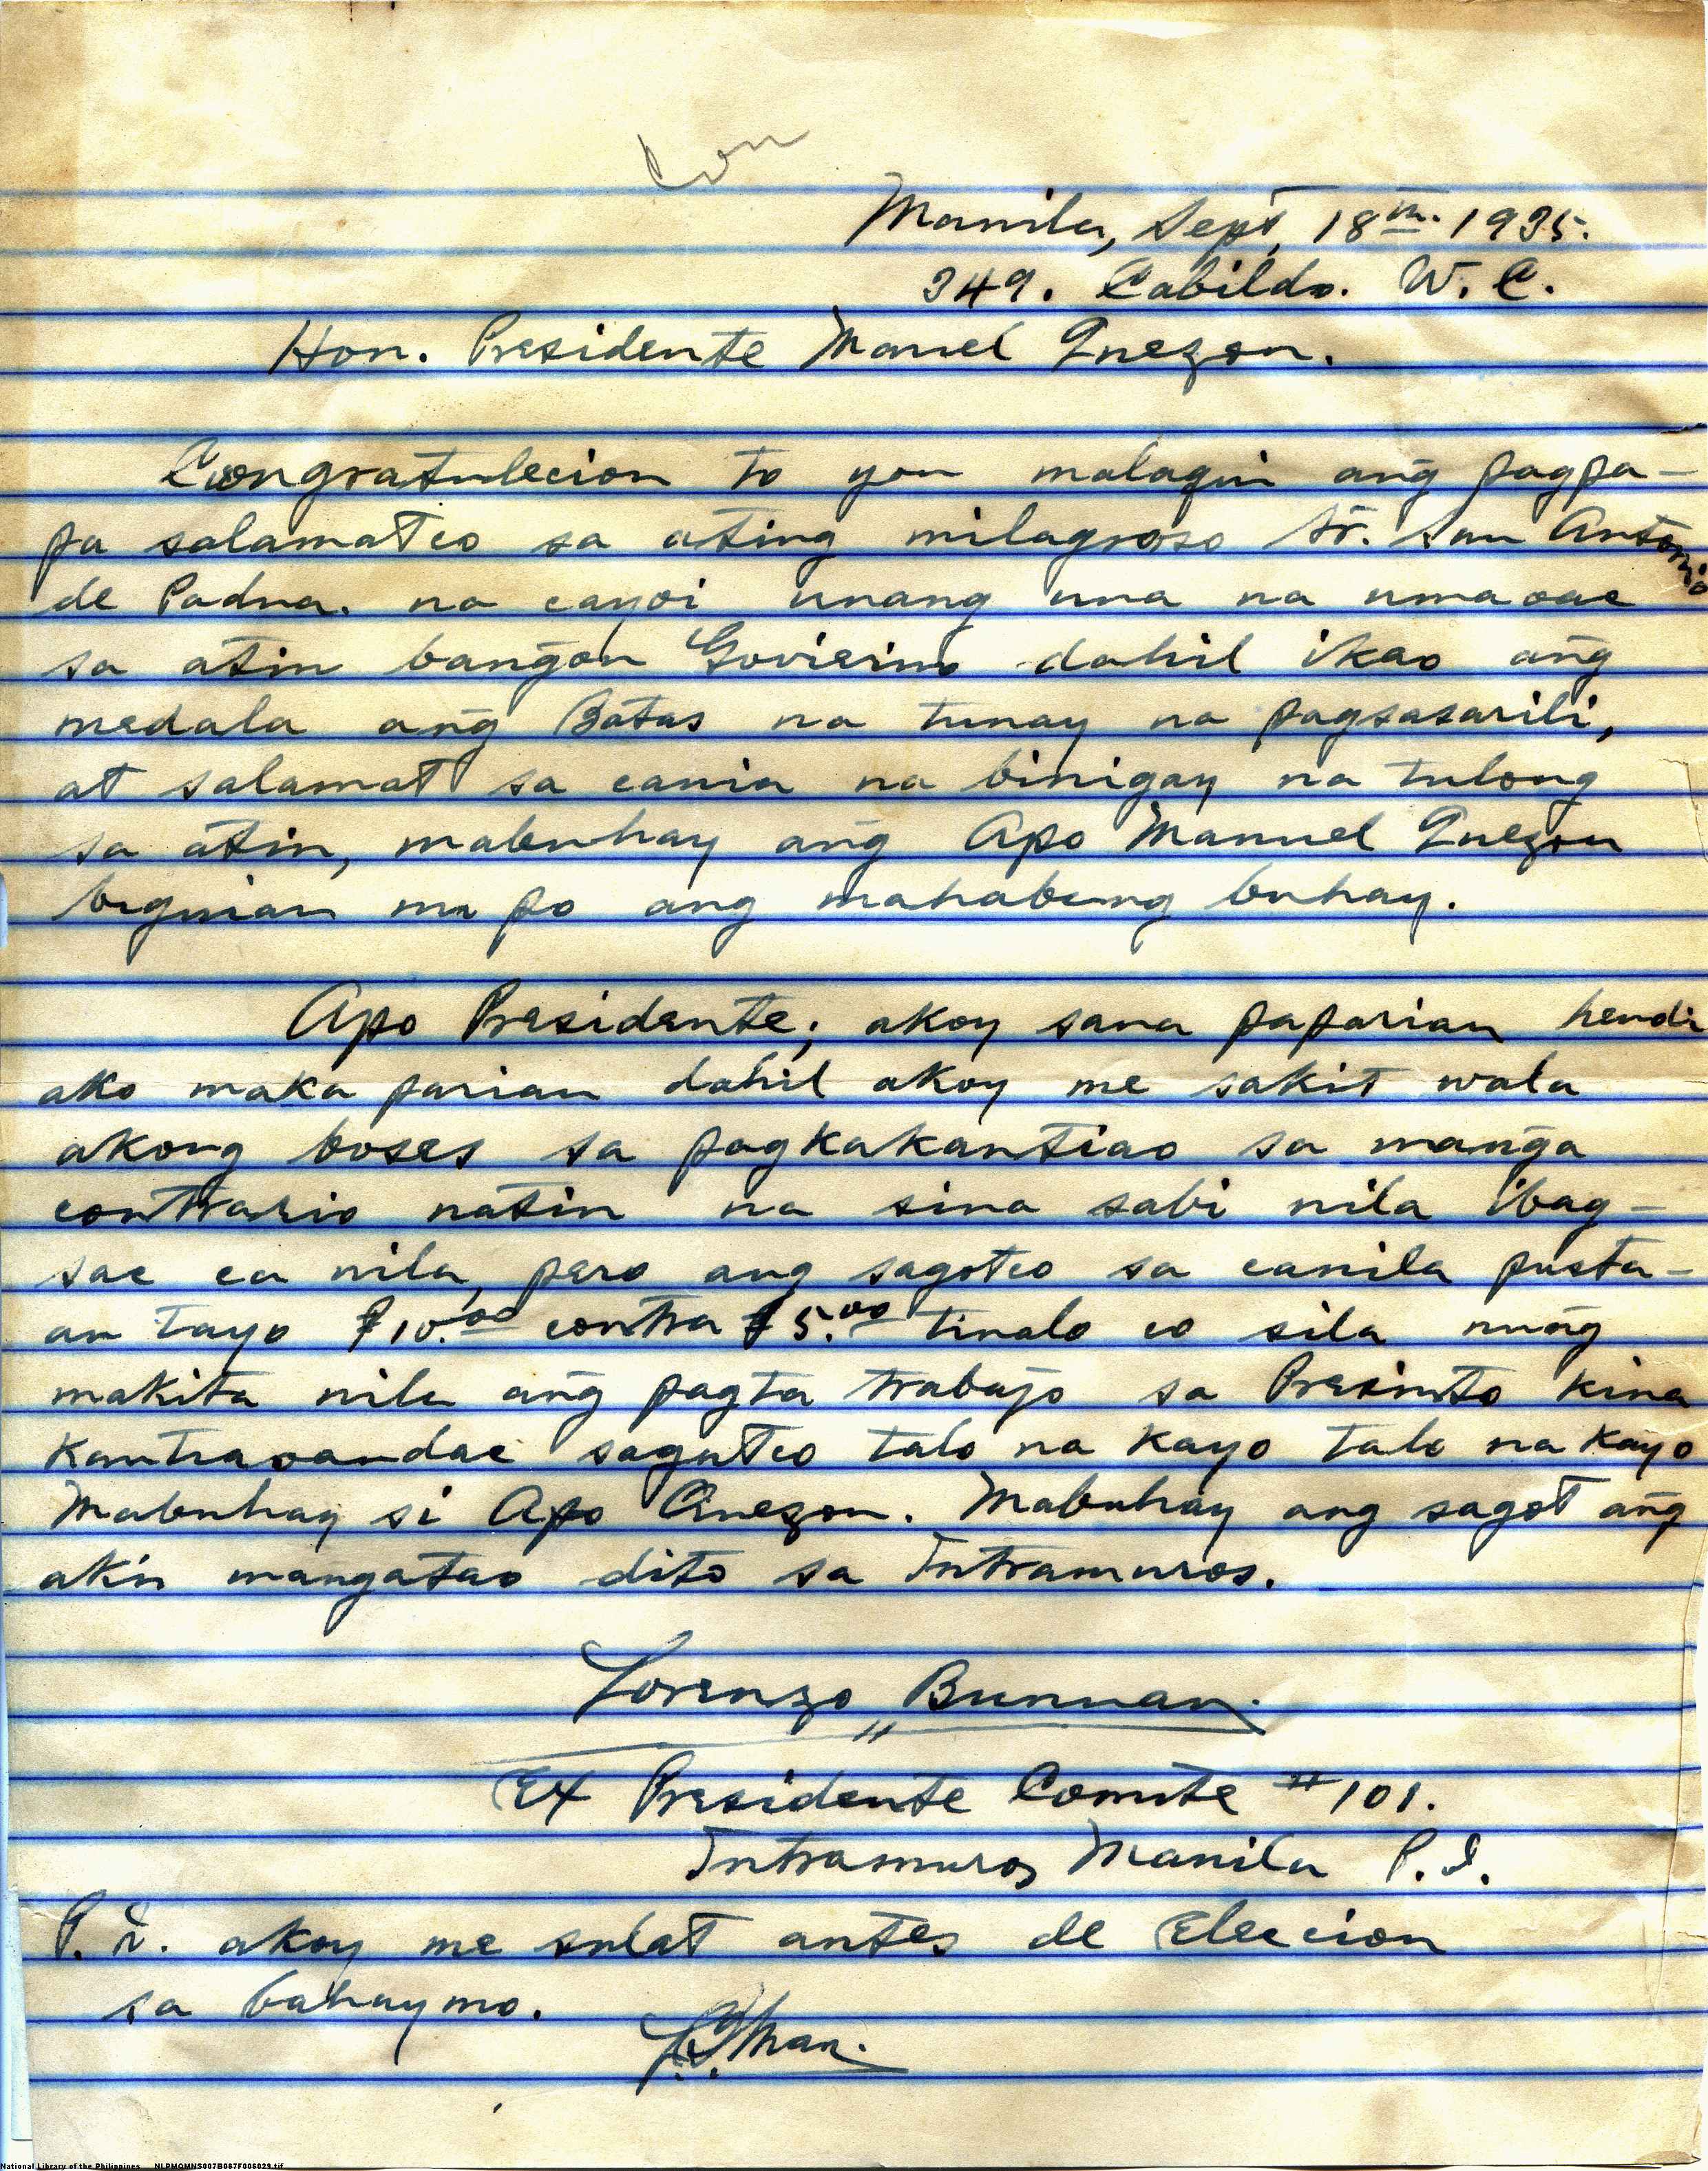 Con
Manila, Sept, 18th. 1935.
349. Cabildo. W. C.
Hon. Presidente Manuel Quezon.
Congratulecion to you malaqui ang pagpa-
pa salamatco sa ating milagroso Sr. San Antonio
de Padua. na cayoi unang una na umaoac
sa atin bangon Govierino dahil ikao ang
medala ang Batas na tunay na pagsasarili,
at salamat sa cania na binigay na tulong
sa atin, mabuhay ang Apo Manuel Quezon
biguian mo po ang mahabang buhay.
Apo Presidente; akoy sana paparian hendi
ako maka parian dahil akoy me sakit wala
akong boses sa pagkakantiao sa manga
contrario natin na sina sabi nila ibag-
sac ca nila, pero ang sagotco sa canila pusta-
an tayo ₱10.00 contra ₱5.00 tinalo co sila nung
makita nila ang pagta trabajo sa Presinto kina
kantraoandac sagutco talo na kayo talo na kayo
Mabuhay si Apo Quezon. Mabuhay ang sagot ang
akin mangatao dito sa Intramuros.
Lorenzo Bunuan.
Ex Presidente Comite #101.
Intramuros Manila P.I.
P.D. akoy me sulat antes de Eleccion
sa bahay mo.
National Library of the Philippines NLPMQMNS007B087F006029.tif